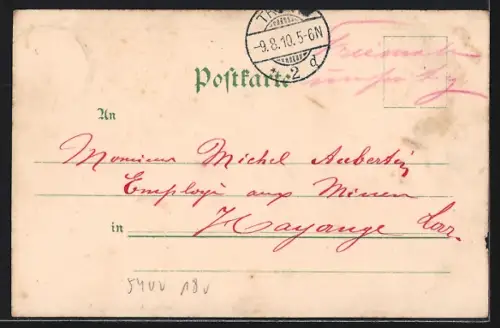 -9.8.10.5-6N
* 2 d
Postkarte
An
Monsieur Michel Aubertin
Employé aux Mines
in Hayange Lor.